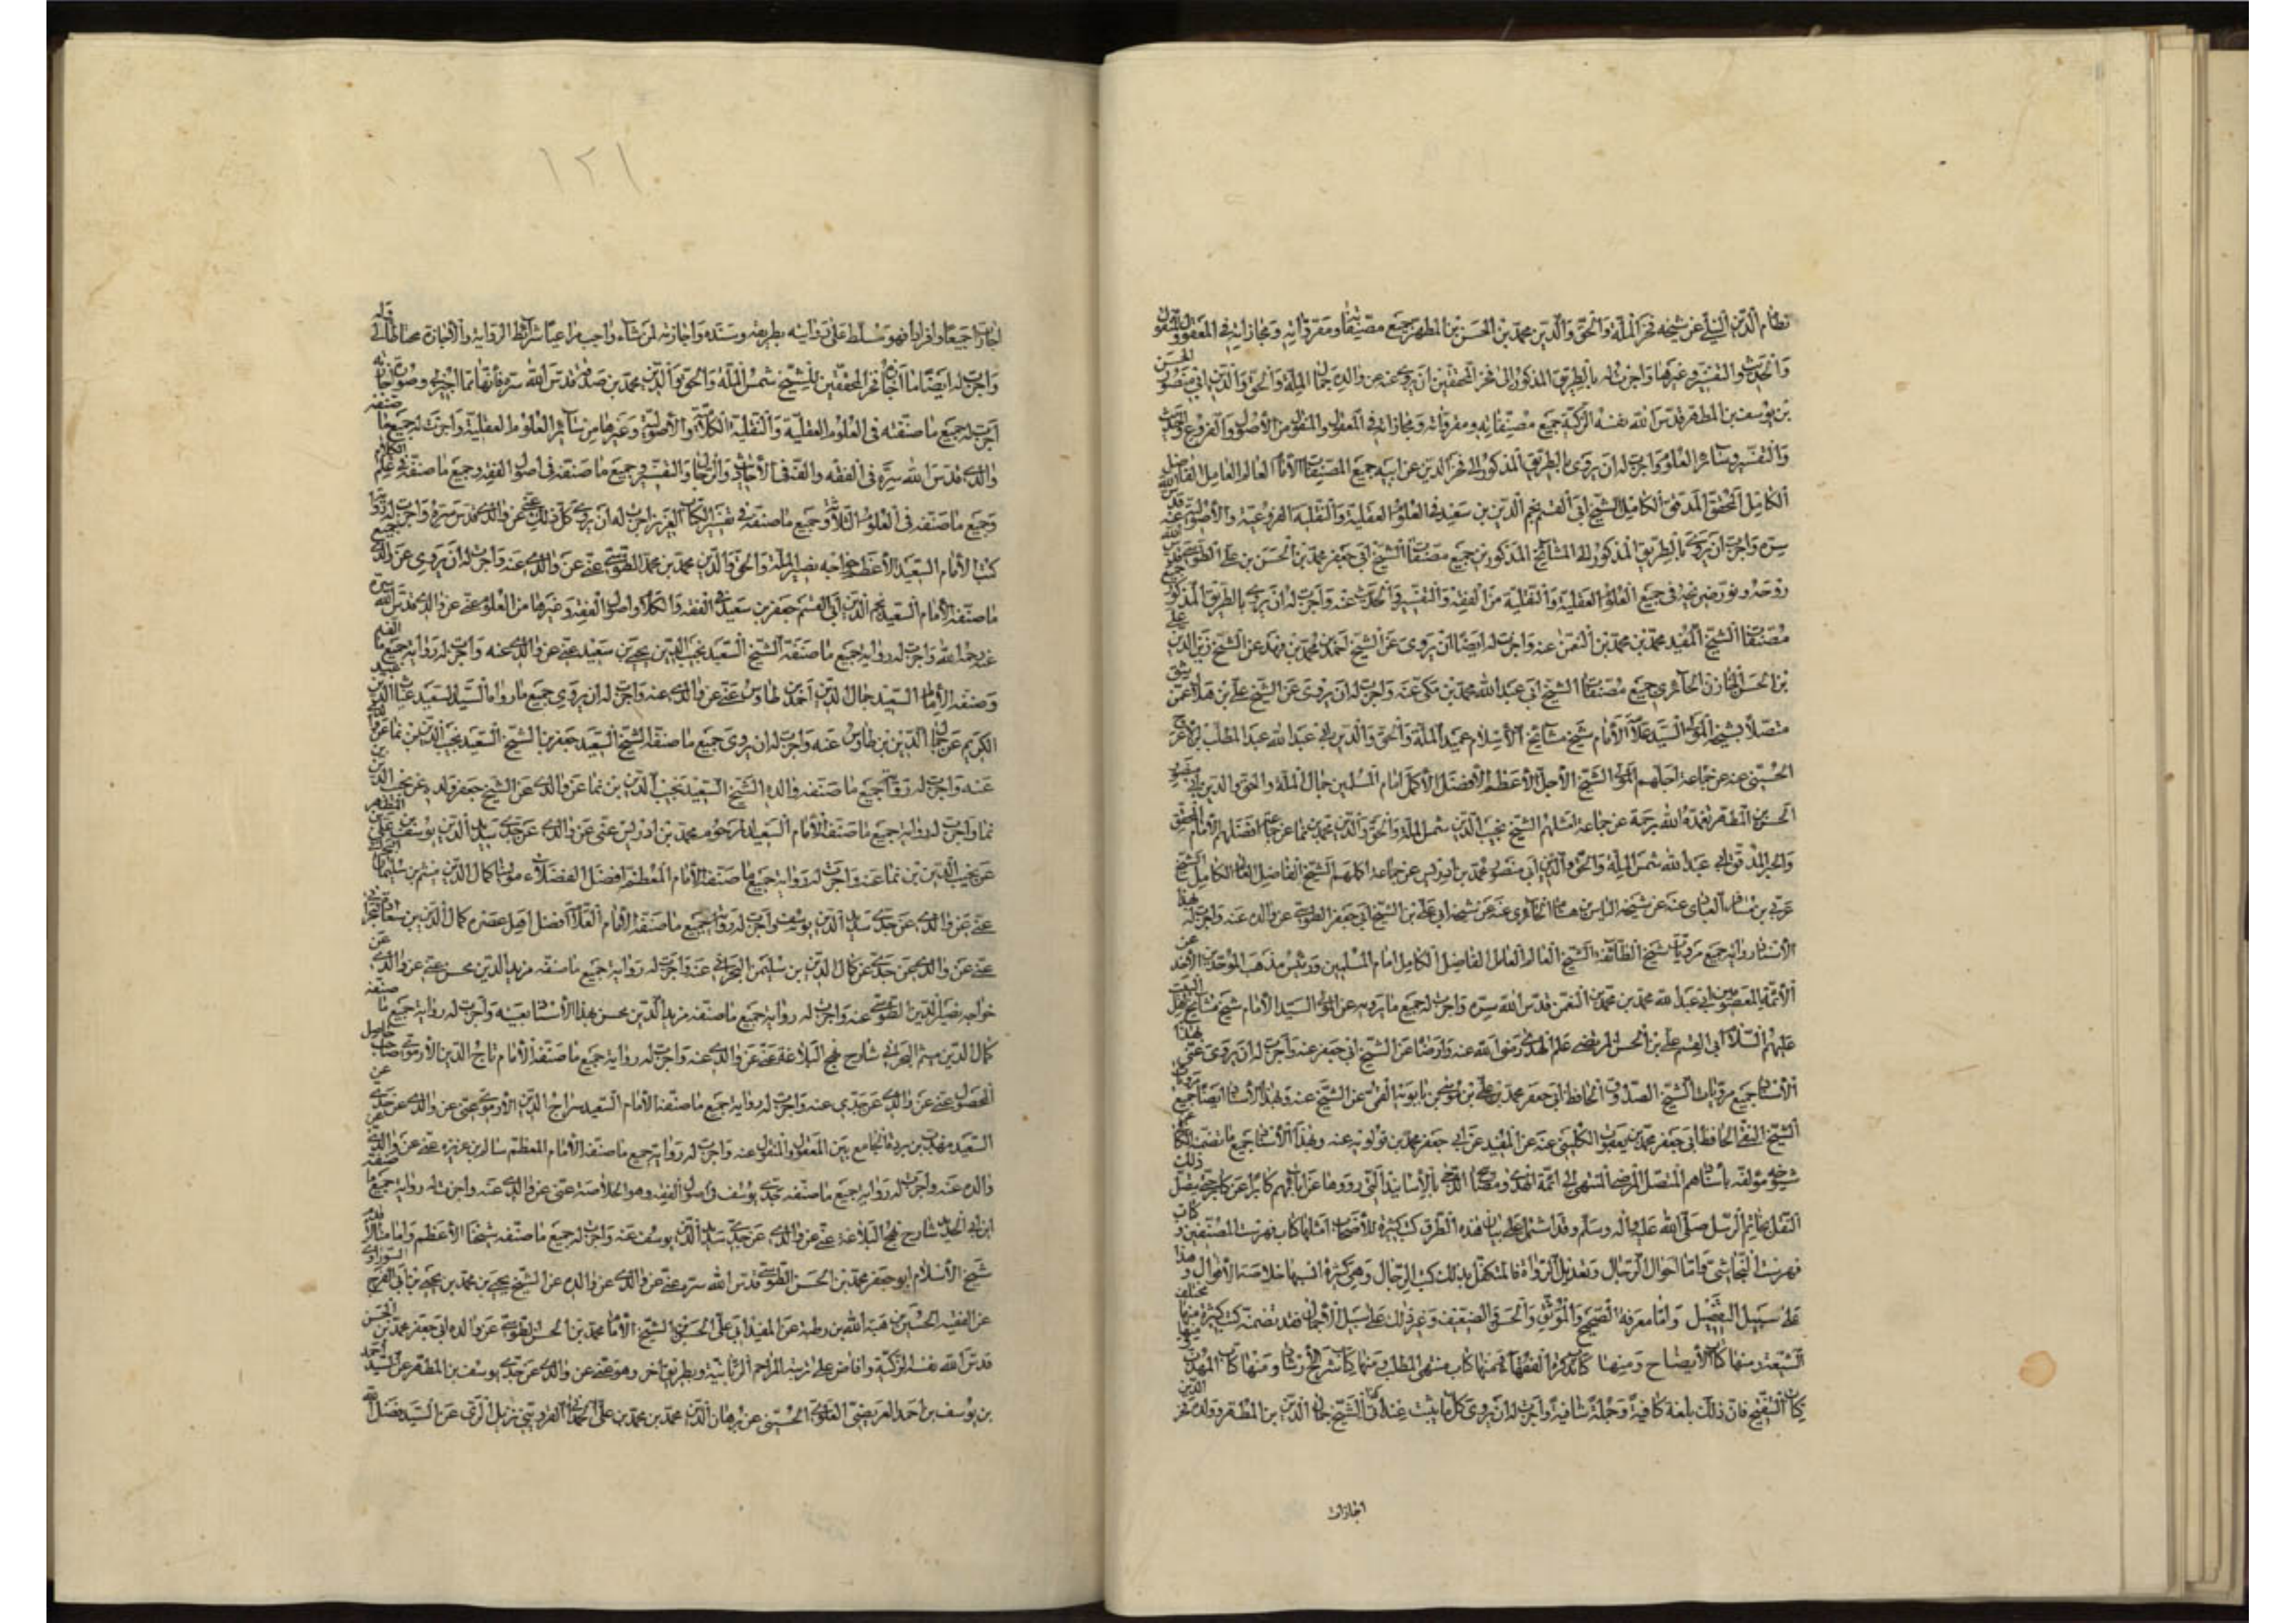 نظام الدين النيلي عن شيخه فخر الملة والحق والدين محمد بن الحسن بن المطهر جميع مصنفاته ومقروآته ومجازاته في المعقول والمنقول
والحديث والتفسير وغيرها واجزت له بالطريق المذكور الى فخر المحققين ان يروي عنه عن والده جمال الملة والحق والدين ابي منصور الحسن
بن يوسف بن المطهر قدس الله نفسه الزكية جميع مصنفاته ومقروآته ومجازاته في المعقول والمنقول من الأصول والفروع والحديث
والتفسير وسائر العلوم واجزت له ان يروي بالطريق المذكور الى فخر الدين عن ابيه جميع المصنفات الامام العالم العامل الفاضل
الكامل المحقق المدقق الكامل الشيخ ابي القسم نجم الدين بن سعيد في العلوم العقلية والنقلية الفروعية والأصولية عنه قدس الله
سره واجزت ان يروي بالطريق المذكور الى المشائخ المذكورين جميع مصنفات الشيخ ابي جعفر محمد بن الحسن بن علي الطوسي قدس الله
روحه ونور ضريحه في جميع العلوم العقلية والنقلية من الفقه والتفسير والحديث عنه واجزت له ان يروي بالطريق المذكور جميع
مصنفات الشيخ المفيد محمد بن محمد بن النعمن عنه واجزت له ايضا ان يروي عن الشيخ احمد بن محمد بن فهد عن الشيخ زين الدين علي
بن الحسن الخازن الحائري جميع مصنفات الشيخ ابي عبد الله محمد بن مكي عنه واجزت له ان يروي عن الشيخ علي بن هلال عمن يثق
متصلا بشيخه المولى السيد علامة الامام شيخ مشائخ الاسلام عميد الملة والحق والدين ابي عبد الله عبد المطلب بن الاعرج
الحسيني عنه عن جماعة اجلهم المولى الشيخ الأجل الأعظم الأفضل الأكمل امام المسلمين جمال الملة والحق والدين ابي منصور
الحسن بن المطهر تغمده الله برحمته عن جماعة امثلهم الشيخ نجيب الدين شمس الملة والحق والدين محمد بن نما عن جماعة افضلهم الامام المحقق
والحبر المدقق ابي عبد الله شمس الملة والحق والدين ابي منصور محمد بن ادريس عن جماعة اكملهم الشيخ الفاضل العالم الكامل الشيخ
عربي بن مسافر العبادي عنه عن شيخه الياس بن هشام الحائري عنه عن شيخه ابي علي بن الشيخ ابي جعفر الطوسي عن والده عنه واجزت له بهذا
الأسناد رواية جميع مرويات شيخ الطائفة الشيخ العالم العامل الفاضل الكامل امام المسلمين ورئيس مذهب الموحدين عن
الأئمة المعصومين ابي عبد الله محمد بن محمد بن النعمن قدس الله سره واجزت له جميع ما يرويه عن المولى السيد الامام شيخ مشائخ اهل البيت
عليهم السلام ابي القسم علي بن الحسن المرتضى علم الهدى رضوان الله عنه وارضاه عن الشيخ ابي جعفر عنه واجزت له ان يروي عني بهذا
الأسناد جميع مرويات الشيخ الصدوق الحافظ ابي جعفر محمد بن علي بن موسى بن بابويه القمي عن الشيخ عنه وبهذا الأسناد ايضا جميع
الشيخ الثقة الحافظ ابي جعفر محمد بن يعقوب الكليني عنه عن المفيد عن ابي جعفر محمد بن قولويه عنه وبهذا الأسناد جميع ما تضمنه
شيخه مؤلفه باسنادهم المتصل المنتهى الى ائمة الهدى ومصابيح الدجى بالأسانيد التي رووها عن ابائهم كابرا عن كابر
النقل بخاتم الرسل صلى الله عليه واله وسلم وقد اشتمل على بيان هذه الطرق كتب كثيرة للأصحاب امثلها كتاب فهرست المصنفين و
فهرست النجاشي واما احوال الرجال وتعديل الرواة فالمتكفل بذلك كتب الرجال وهي كثيرة انسبها خلاصة الأقوال
على سبيل التفصيل واما معرفة الصحيح والموثق والحسن والضعيف وغير ذلك على سبيل الأيمان فقد تضمنه كتب كثيرة منها مختلف
الشيعة ومنها كتاب الأيضاح ومنها كتاب تذكرة الفقهاء ومنها كتاب منتهى المطلب ومنها كتاب شرح الارشاد ومنها كتاب المهذب
كتاب التنقيح فان ذلك بلغة كافية وجملة شافية واجزت له ان يروي كل ما يثبت عنده ان الشيخ جمال الدين بن المطهر وولده فخر الدين
اجازات
١٢١
اجازات جميعا وافرادا فهو مسلط على روايته بطريقه وسنده واجازته لمن شاء واحب مراعيا شرائط الرواية والأجازة
واجزت له ايضا ما اجازه فخر المحققين للشيخ شمس الملة والحق والدين محمد بن صدقة قدس الله سره فأنها مما اخبره وصورته
اجزت له جميع ما صنفته في العلوم العقلية والنقلية الكلامية والأصولية وغيرها من سائر العلوم العقلية واجزت له جميع ما صنفه
والدي قدس الله سره في الفقه والفتيا الأحاديث والرجال والتفسير وجميع ما صنفه في اصول الفقه وجميع ما صنفه في علم الكلام
وجميع ما صنفه في العلوم الثلاثة وجميع ما صنفه في تفسير الكتاب العزيز اجزت له ان يروي كل ذلك عني عن والدي قدس سره واجزت له رواية
كتب الأمام السعيد الأعظم خواجه نصير الملة والحق والدين محمد بن محمد الطوسي عني عن والدي عنه واجزت له ان يروي عن والدي جميع
ما صنفه الأمام السعيد نجم الدين ابي القسم جعفر بن سعيد في الفقه والكلام واصول الفقه وغيرها من العلوم عني عن والدي قدس الله سره
عنه رحمه الله واجزت له رواية جميع ما صنفه الشيخ السعيد نجيب الدين يحيى بن سعيد عني عن والدي عنه واجزت له رواية جميع ما
وصنفه الأمام السعيد جمال الدين احمد بن طاوس عني عن والدي عنه واجزت له ان يروي جميع ما رواه السيد السعيد غياث الدين عبد
الكريم عن جمال الدين بن طاوس عنه واجزت له ان يروي جميع ما صنفه الشيخ السعيد جعفر بن الشيخ السعيد نجيب الدين بن نما عن
عنه واجزت له رواية جميع ما صنفه والده الشيخ السعيد نجيب الدين بن نما عن والدي عن الشيخ جعفر ولده عن نجيب الدين بن
نما واجزت له رواية جميع ما صنفه الأمام السعيد المرحوم محمد بن ادريس عني عن والدي عن جدي سديد الدين يوسف بن علي المطهر
عن نجيب الدين بن نما عنه واجزت له رواية جميع ما صنفه الأمام المعظم افضل الفضلاء مولانا كمال الدين ميثم بن سليمان
عني عن والدي عن جدي سديد الدين يوسف واجزت له رواية جميع ما صنفه الأمام العلامة افضل اهل عصره كمال الدين بن سعادة البحراني
عني عن والدي عن جدي عن كمال الدين بن سليمن البحراني عنه واجزت له رواية جميع ما صنفه مزيد الدين محسن عني عن والدي عن
خواجه نصير الدين الطوسي عنه واجزت له رواية جميع ما صنفه مزيد الدين محسن بهذا الأسناد بعينه واجزت له رواية جميع ما صنفه
كمال الدين ميثم البحراني شارح نهج البلاغة عني عن والدي عنه واجزت له رواية جميع ما صنفه الأمام تاج الدين الأرموي صاحب حاصل
المحصول عني عن والدي عن جدي عنه واجزت له رواية جميع ما صنفه الأمام السعيد سراج الدين الأرموي عني عن والدي عن جدي عن
السعيد مهذب بن بردة الجامع بين المعقول والمنقول عنه واجزت له رواية جميع ما صنفه الأمام المعظم سالم بن عزيزة عني عن والدي عن
والده عنه واجزت له رواية جميع ما صنفه جدي يوسف في اصول الفقه وهو الخلاصة عني عن والدي عنه واجزت له رواية جميع ما صنفه
ابن ابي الحديد شارح نهج البلاغة عني عن والدي عن جدي سديد الدين يوسف عنه واجزت له جميع ما صنفه شيخنا الأعظم وامامنا الأقدم
شيخ الأسلام ابو جعفر محمد بن الحسن الطوسي قدس الله سره عني عن والدي عن والده عن الشيخ يحيى بن محمد بن يحيى بن ابي الفرج السوراوي
عن الفقيه الحسين بن هبة الله بن رطبة عن المفيد ابي علي الحسن بن الشيخ الأمام محمد بن الحسن الطوسي عن والده ابي جعفر محمد بن الحسن
قدس الله نفسه الزكية وافاض على تربته المراحم الربانية وبطريق اخر وهو عني عن والدي عن جدي يوسف بن المطهر عن السيد احمد
بن يوسف بن احمد العريضي العلوي الحسيني عن برهان الدين محمد بن محمد بن علي الحمداني القزويني نزيل الري عن السيد فضل الله